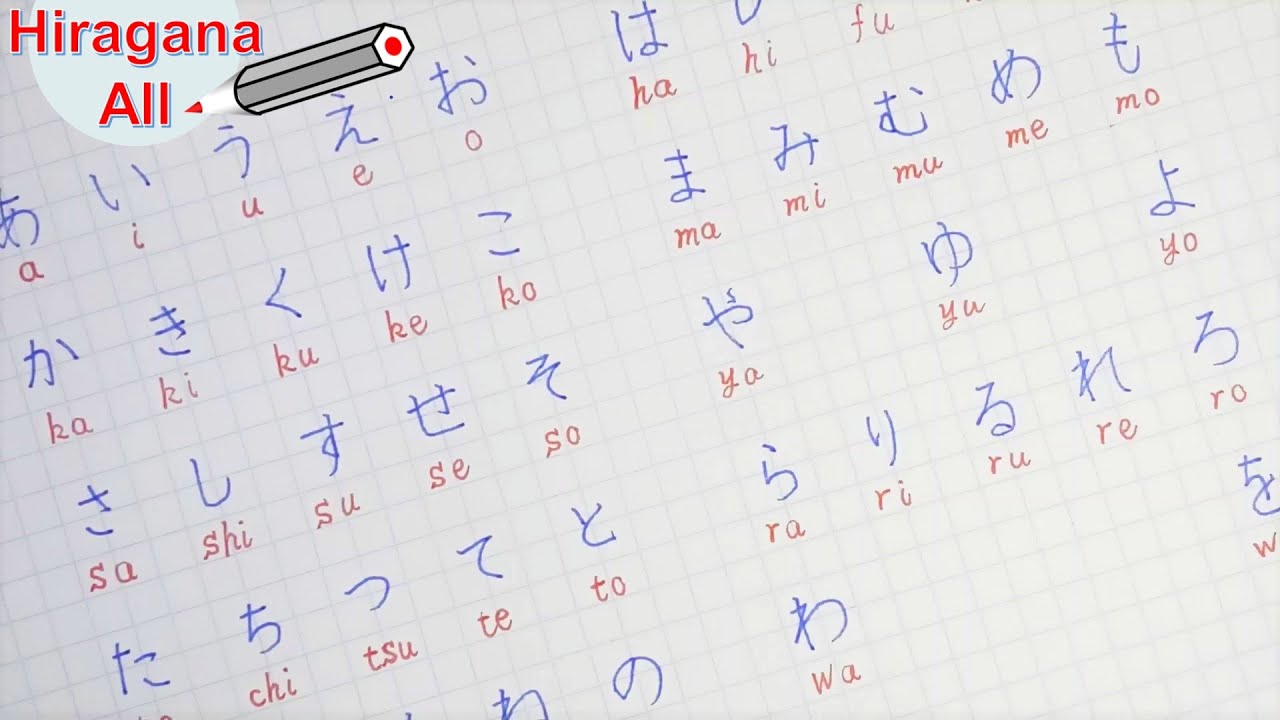 Hiragana
All
あ い う え お
a i u e o
か き く け こ
ka ki ku ke ko
さ し す せ そ
sa shi su se so
た ち つ て と
chi tsu te to
の
は
ha hi fu
ま み む め も
ma mi mu me mo
や ゆ よ
ya yu yo
ら り る れ ろ
ra ri ru re ro
わ を
wa